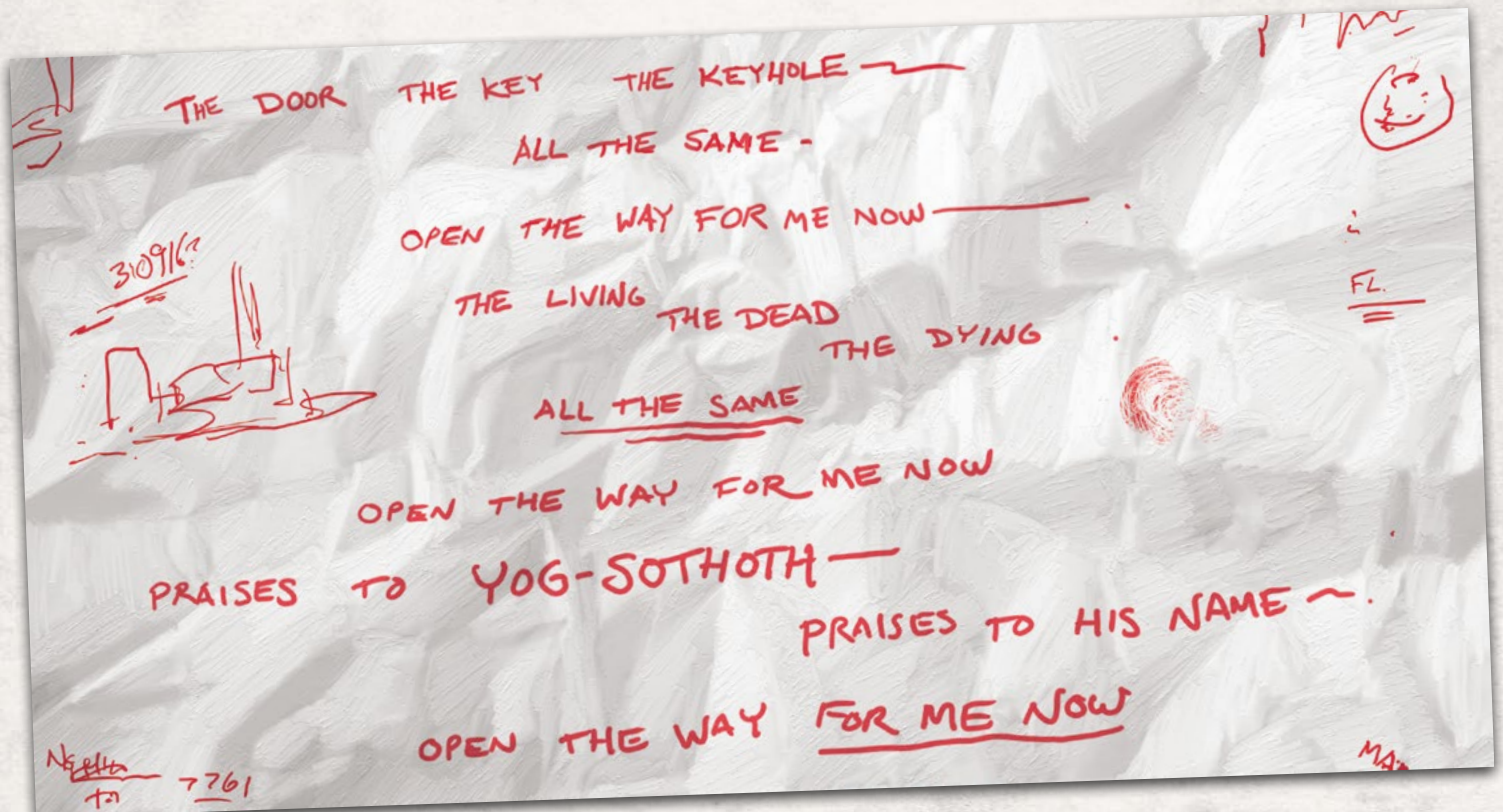 THE DOOR THE KEY THE KEYHOLE —
ALL THE SAME -
OPEN THE WAY FOR ME NOW —
310916?
THE LIVING THE DEAD THE DYING
FL.
ALL THE SAME
OPEN THE WAY FOR ME NOW
PRAISES TO YOG-SOTHOTH —
PRAISES TO HIS NAME ~.
OPEN THE WAY FOR ME NOW
7761